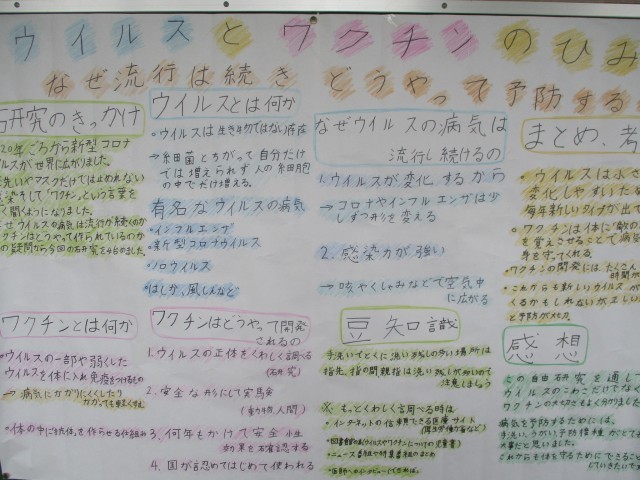 ウイルスとワクチンのひみ
なぜ流行は続き どうやって予防する
研究のきっかけ
20年ごろから新型コロナ
ルスが世界に広がりました。
洗いやマスクだけでは止められない
「ワクチン」という言葉を
聞くようになりました。
ウイルスの病気は流行が続くのか
クチンはどうやって作られているのか
疑問から今回の石研究を始めました。
ウイルスとは何か
・ウイルスは生き物ではない病原
→細菌とちがって自分だけ
では増えられず人の細胞
の中でだけ増える。
有名なウイルスの病気
・インフルエンザ
・新型コロナウイルス
・ノロウイルス
・はしか、風しんなど
なぜウイルスの病気は
流行し続けるの
1.ウイルスが変化するから
→コロナやインフルエンザは少
しずつ形を変える
2.感染力が強い
→咳やくしゃみなどで空気中
に広がる
まとめ、考
・ウイルスは小さ
変化しやすいた
毎年新しいタイプが出て
・ワクチンは体に「敵の
を覚えさせることで病気
身を守ってくれる。
・ワクチンの開発にはたくさん
時間
・これからも新しいウイルスが
くるかもしれないが正しい
と予防が大
ワクチンとは何か
・ウイルスの一部や弱くした
ウイルスを体に入れ免疫をつけるもの
→病気にかかりにくくしたり
かかっても軽くすむ
・体の中に抗体を作らせる仕組み
ワクチンはどうやって開発
されるの
1.ウイルスの正体をくわしく調べる
(研究)
2.安全な形にして実験
(動物、人間)
3.何年もかけて安全性
効果を確認する
4.国が認めてはじめて使われる
豆知識
手洗いでとくに洗い残しの多い場所は
指先、指の間、親指は洗い残しが多いので
注意しましょう
※もっとくわしく調べる時は
・インターネットの信頼できる医療サイト
(厚生労働省など)
・図書館の本(ウイルスやワクチンについての児童書)
・ニュース番組や特集番組のまとめ
・医師へのインタビューもできれば。
感想
この自由研究を通して
ウイルスのこわさだけでなく
ワクチンの大切さもよく分かりました
病気を予防するためには、
手洗い、うがい、予防接種がとても
大事だと思いました。
これからも体を守るためにできること
していきたいで